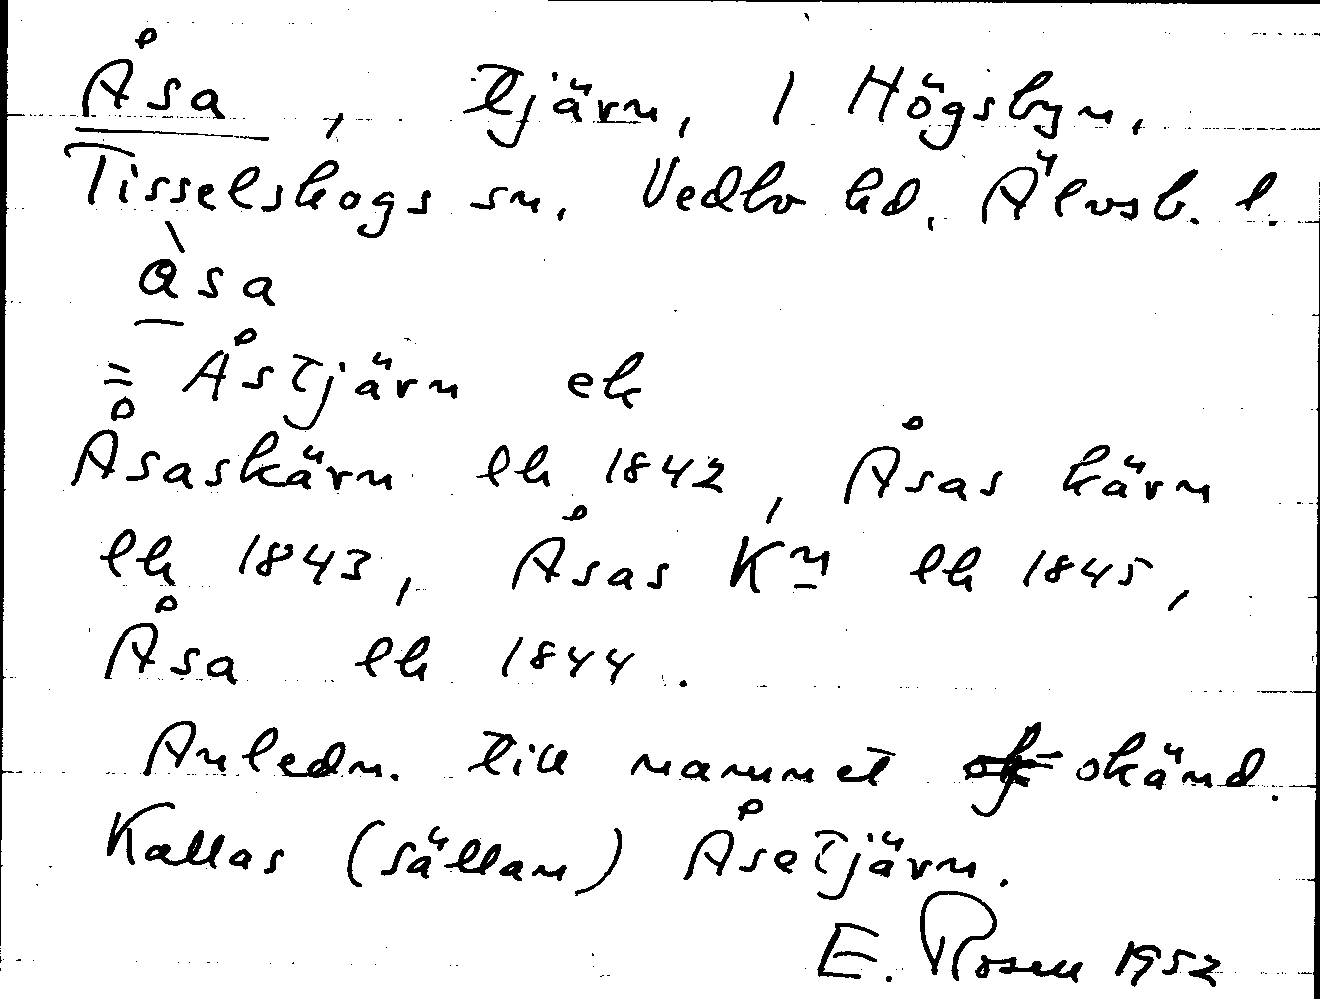 Åsa, tjärn, 1 Högsbyn,
Tisselskogs sn, Vedbo hd, Älvsb. l.
àsa
= Åstjärn ek
Åsaskärn lh 1842, Åsas kärn
lh 1843, Åsas Kn lh 1845,
Åsa lh 1844.
Anledn. till namnet okänd.
Kallas (sällan) Åsetjärn.
E. Rosell 1952